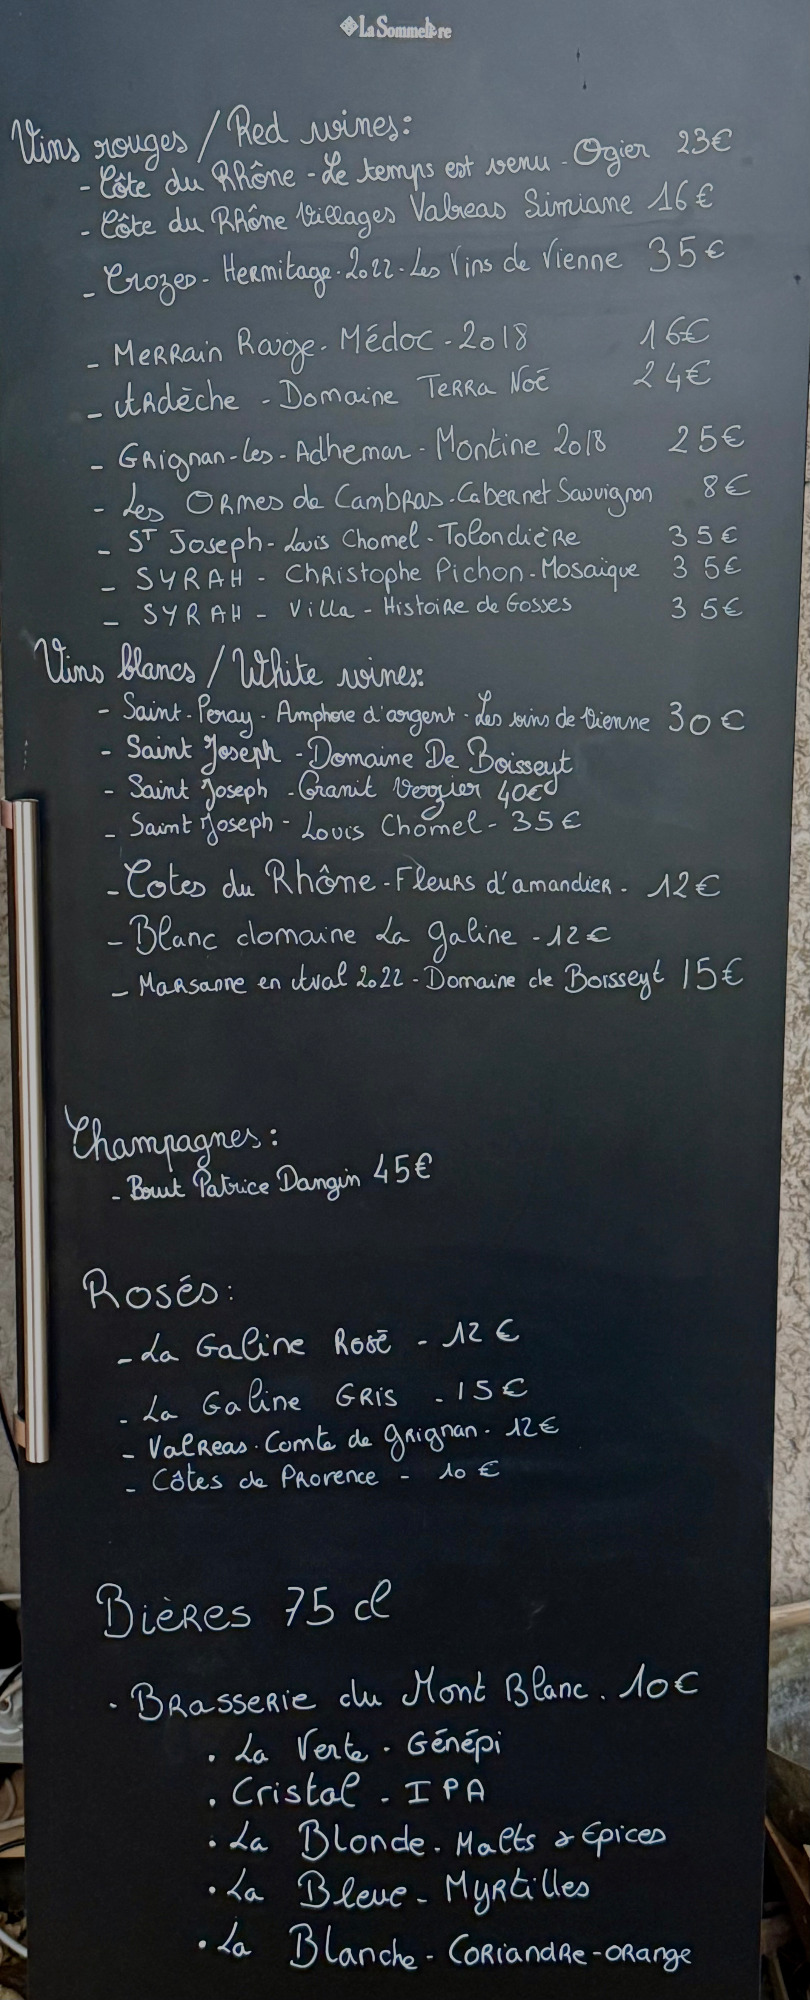 La Sommelière
Vins rouges / Red wines:
- Côte du Rhône - Le temps est venu - Ogier 23€
- Côte du Rhône Villages Valreas Simiane 16€
- Crozes - Hermitage - 2022 - Les Vins de Vienne 35€
- Merrain Rouge - Médoc - 2018 16€
- Ardèche - Domaine Terra Noé 24€
- Grignan - les - Adhemar - Montine 2018 25€
- Les Ormes de Cambras - Cabernet Sauvignon 8€
- ST Joseph - Louis Chomel - Tolondière 35€
- SYRAH - Christophe Pichon - Mosaïque 35€
- SYRAH - Villa - Histoire de Gosses 35€
Vins blancs / White wines:
- Saint - Peray - Amphore d'argent - Les vins de Vienne 30€
- Saint Joseph - Domaine De Boisseyt
- Saint Joseph - Granit Verzier 40€
- Saint Joseph - Louis Chomel - 35€
- Cotes du Rhône - Fleurs d'amandier - 12€
- Blanc domaine La galine - 12€
- Marsanne en Aval 2022 - Domaine de Boisseyt 15€
Champagnes:
- Brut Patrice Dangin 45€
Rosés:
- La Galine Rosé - 12€
- La Galine GRIS - 15€
- Valreas - Comte de grignan - 12€
- Côtes de Provence - 10€
Bières 75 cl
- Brasserie du Mont Blanc - 10€
• La Verte - Génépi
• Cristal - IPA
• La Blonde - Malts & Epices
• La Bleue - Myrtilles
• La Blanche - Coriandre - orange